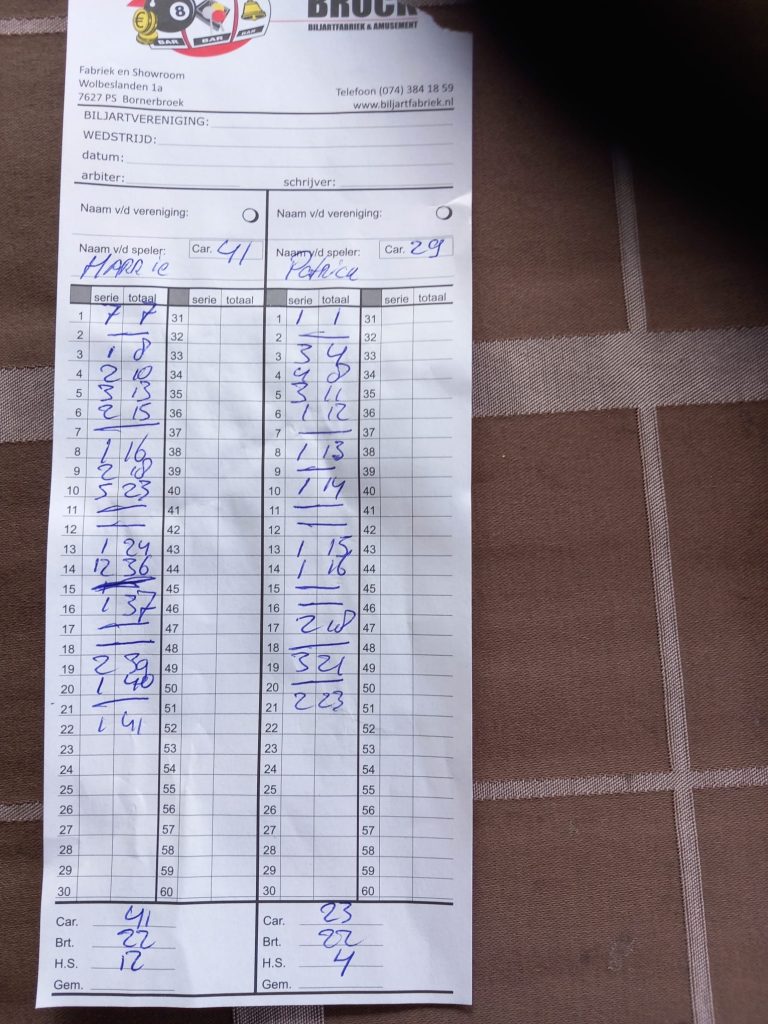 8
BAR BAR BAR
BROCK
BILJARTFABRIEK & AMUSEMENT
Fabriek en Showroom
Wolbeslanden 1a
7627 PS Bornerbroek
Telefoon (074) 384 18 59
www.biljartfabriek.nl
BILJARTVERENIGING:
WEDSTRIJD:
datum:
arbiter: schrijver:
Naam v/d vereniging: Naam v/d vereniging:
Naam v/d speler: Car. 41 Naam v/d speler: Car. 29
HARRie Patrick
serie totaal serie totaal serie totaal serie totaal
1 7 7 31 1 1 1 31
2 — 32 2 — 32
3 1 8 33 3 3 4 33
4 2 10 34 4 4 8 34
5 3 13 35 5 3 11 35
6 2 15 36 6 1 12 36
7 — 37 7 — 37
8 1 16 38 8 1 13 38
9 2 18 39 9 — 39
10 5 23 40 10 1 14 40
11 — 41 11 — 41
12 — 42 12 — 42
13 1 24 43 13 1 15 43
14 12 36 44 14 1 16 44
15 — 45 15 — 45
16 1 37 46 16 — 46
17 — 47 17 2 18 47
18 — 48 18 — 48
19 2 39 49 19 3 21 49
20 1 40 50 20 — 50
21 — 51 21 2 23 51
22 1 41 52 22 52
23 53 23 53
24 54 24 54
25 55 25 55
26 56 26 56
27 57 27 57
28 58 28 58
29 59 29 59
30 60 30 60
Car. 41 Car. 23
Brt. 22 Brt. 22
H.S. 12 H.S. 4
Gem. Gem.